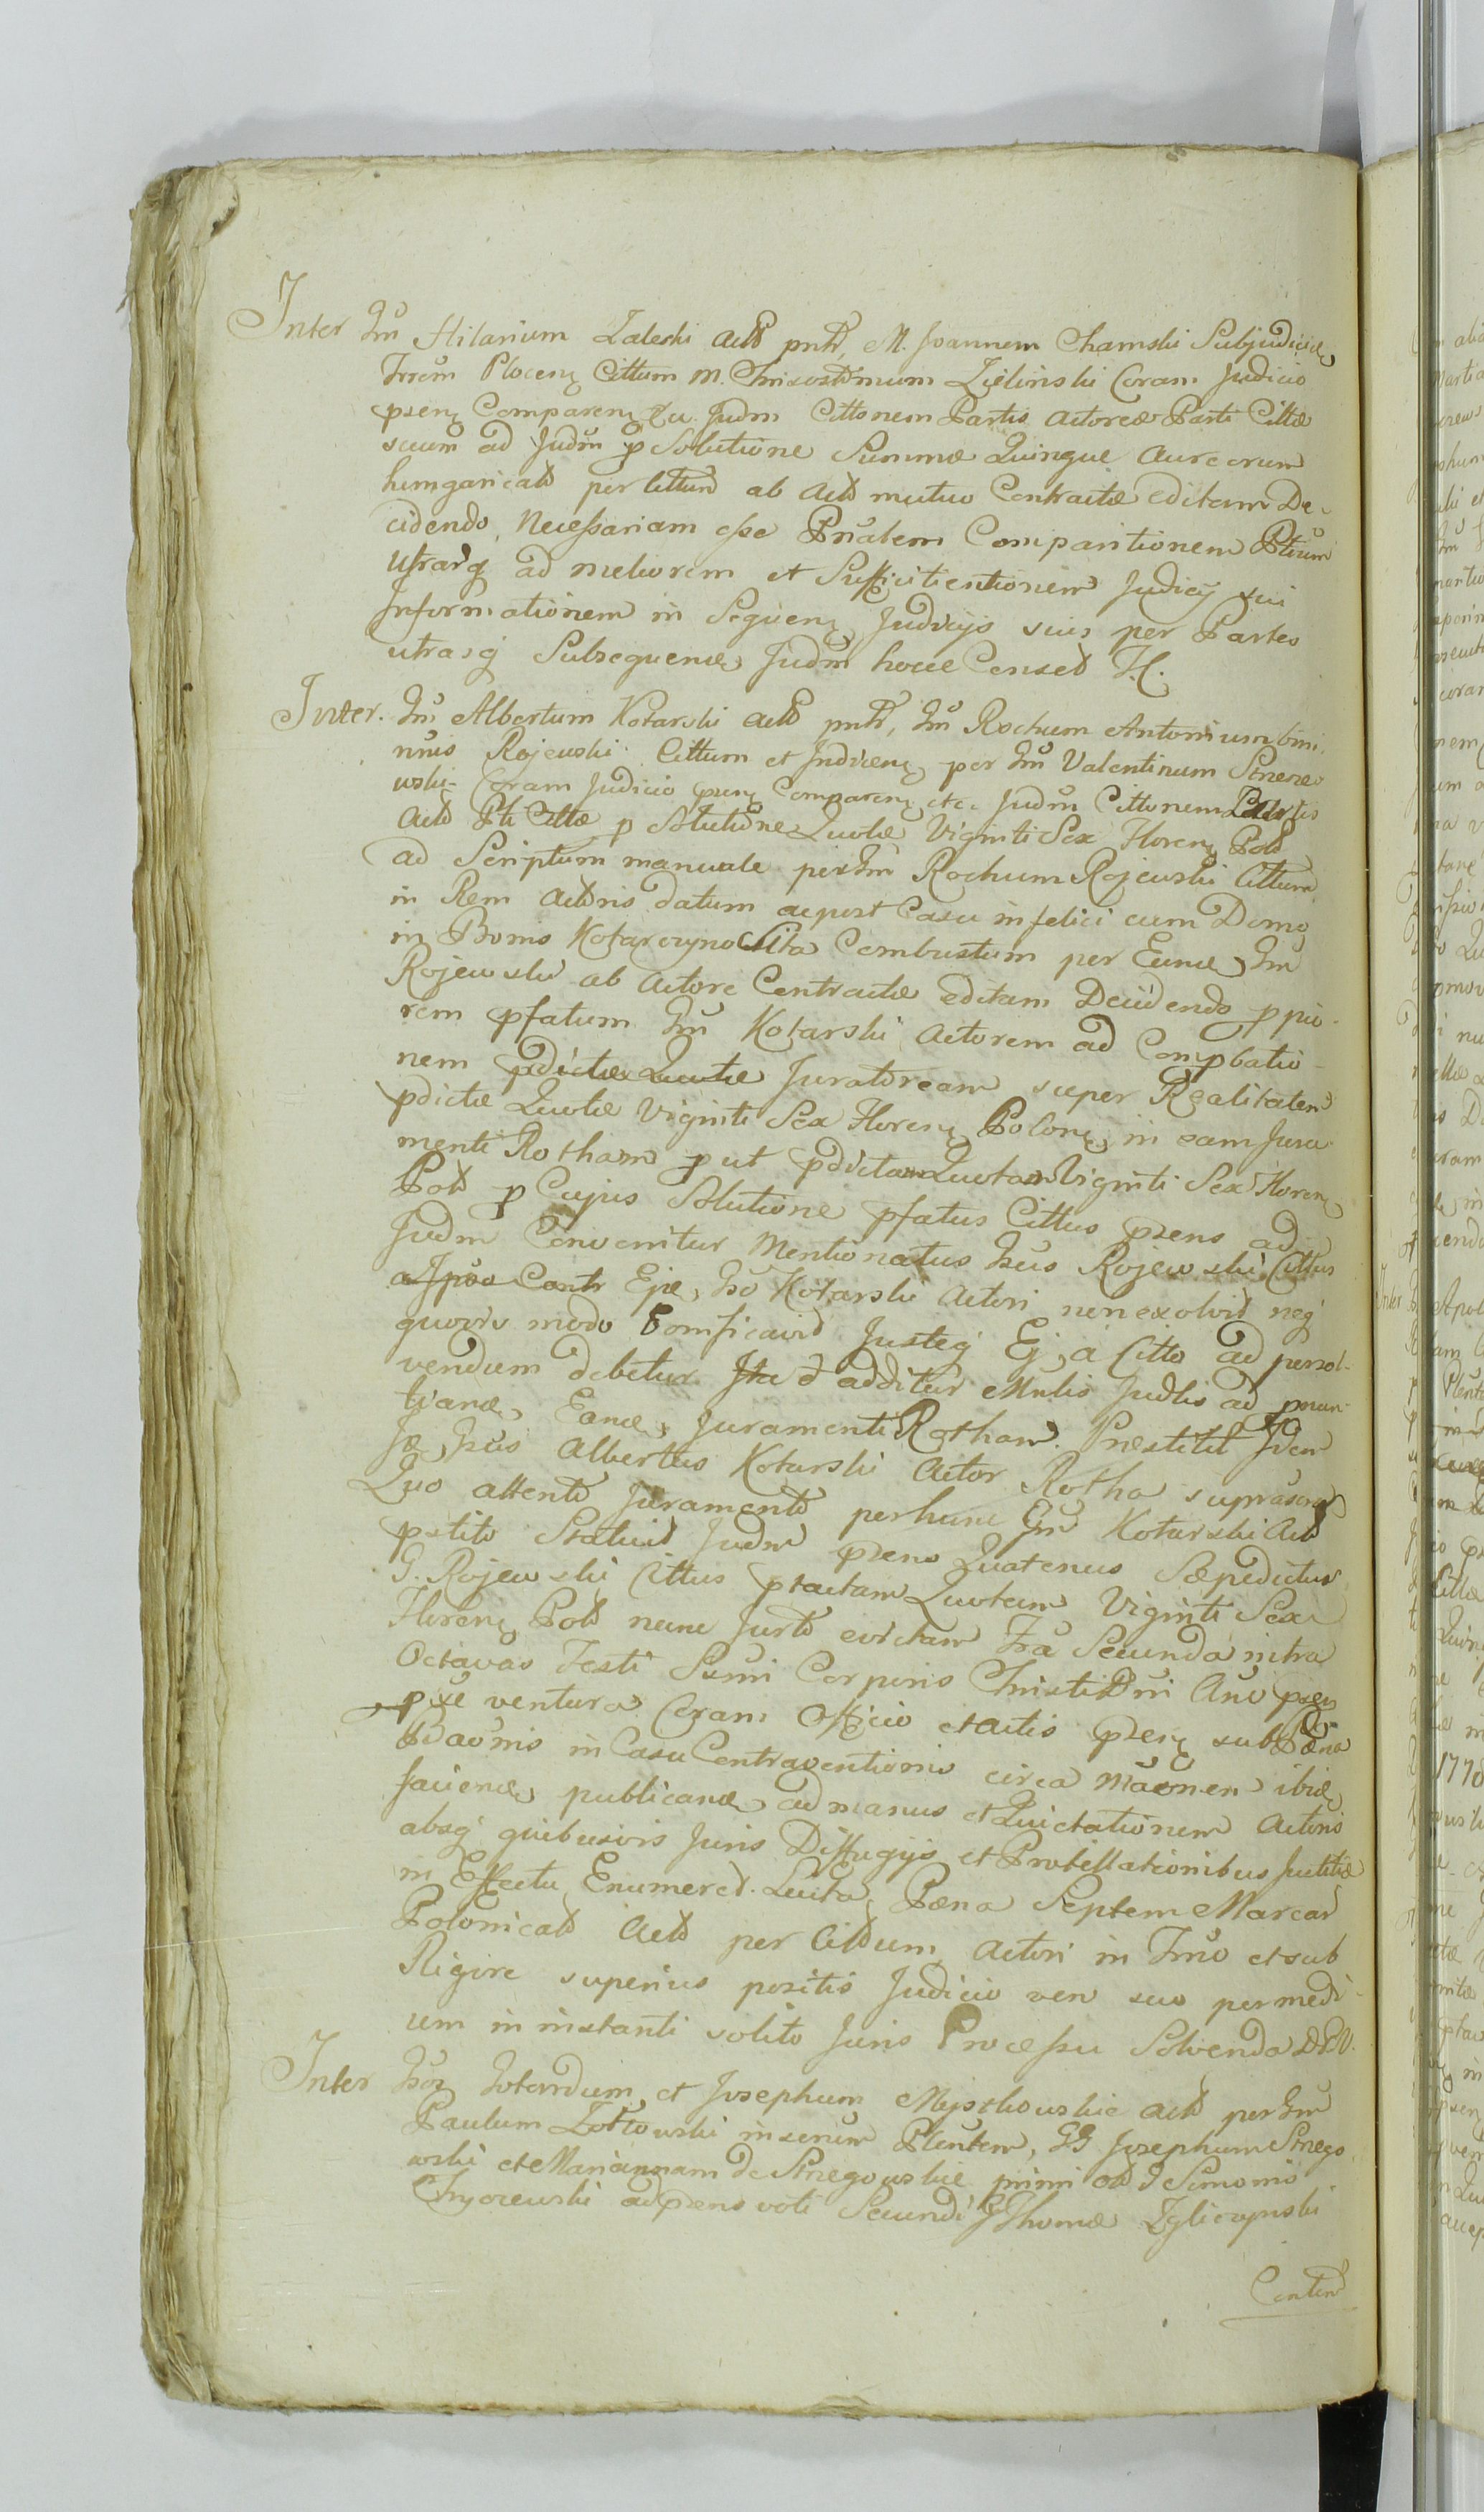 Inter Gm Hilarium Zaleski Actō pntē, M. Joannem Chamski Subjudicem
Trrem Plocen Cittum M. Chrisostomum Zielinski Coram Judicio
psen Comparen Judm Cittonem Partis Actoreæ Parti Cittæ
suum ad Judm p Solutione Summæ Quinque Aureorum
hungaricalō per Cittum ab Actō mutuo Contractæ editam De-
cidendo, Necessariam esse Prsalem Comparitionem Ptium
Utrarq ad meliorem et Sufficientiorem Judicij sui
Informationem in Sequen Judicijs suis per Partes
utrasq Subsequen Judm hocce Censet H.
Inter. Gm Albertum Kotarski Actō pntē, Gm Rochum Antonium bini
nnis Rojewski Cittum et Judicen per Gm Valentinum Strzeżo
wski Coram Judicio psen Comparen etc. Judm Cittonem Partis
Actō Pti Cittæ p Solutione Quotæ Viginti Sex Floren Polō
ad Scriptum manuale per Gm Rochum Rojewski Cittum
in Rem Actōris datum ac post Casu infelici cum Domo
in Bonis Kotarczyno Sita Combustum per Eund Gm
Rojewski ab Actore Contractæ editam Decidendo ppio-
rem pfatum Gm Kotarski Actorem ad Compbatio-
nem pdictæ Quotæ Juratoream super Realitatem
pdictæ Quotæ Viginti Sex Floren Polon in eam Jura
menti Rotham p ut pdictam Quotam Viginti Sex Floren
Polō p Cujus Solutione pfatus Cittus psens ad
Judm Convenitur Mentionatus Gsus Rojewski Cittus
a Ipso Contr Gso Kotarski Actori non exolvit neq
quovis modo bonificavit Justeq Ej a Citto ad persol-
vendum debetur Ita d additur Mnlis Judlis ad
Eand Juramenti Rotham. Præstitit Idem
Gsus Albertus Kotarski Actor Rotha suprascrā
Quo attentō Juramentō per hunc Gm Kotarski Actō
pstito Statuit Judm psens Quatenus Sæpedictus
G. Rojewski Cittus Quotam Viginti Sex
Floren Polō nunc Jurtō evictam Fra Secunda intra
Octavas Festi Ssmi Corporis Christi Dni Ano psen
pxe ventura Coram Officio et Actis psen sub Pæna
Bdaonis in Casu Contraventionis circa ibid
facien publicand ad manus et Quictationem Actoris
absq quibusvis Juris Diffugijs et Protellationibus Justitiæ
in Effectu Enumeret. Pæna Septem Marcar
Polonicalō Actō per Cittum Actori in Frno et sub
Rigore superius positis Judicio vero suo per medi-
um in instanti solito Juris Processu Solvenda
Inter Gsos Gotardum et Josephum Myszkowskie Actō per Gm
Paulum Żółtowski Plentem, GG Josephum Strzego
wski et Mariannam de Strzegowskie primi olō G Simonis
Chyczewski ad psens voti Secundi G Thomæ Zgliczynski
Contind